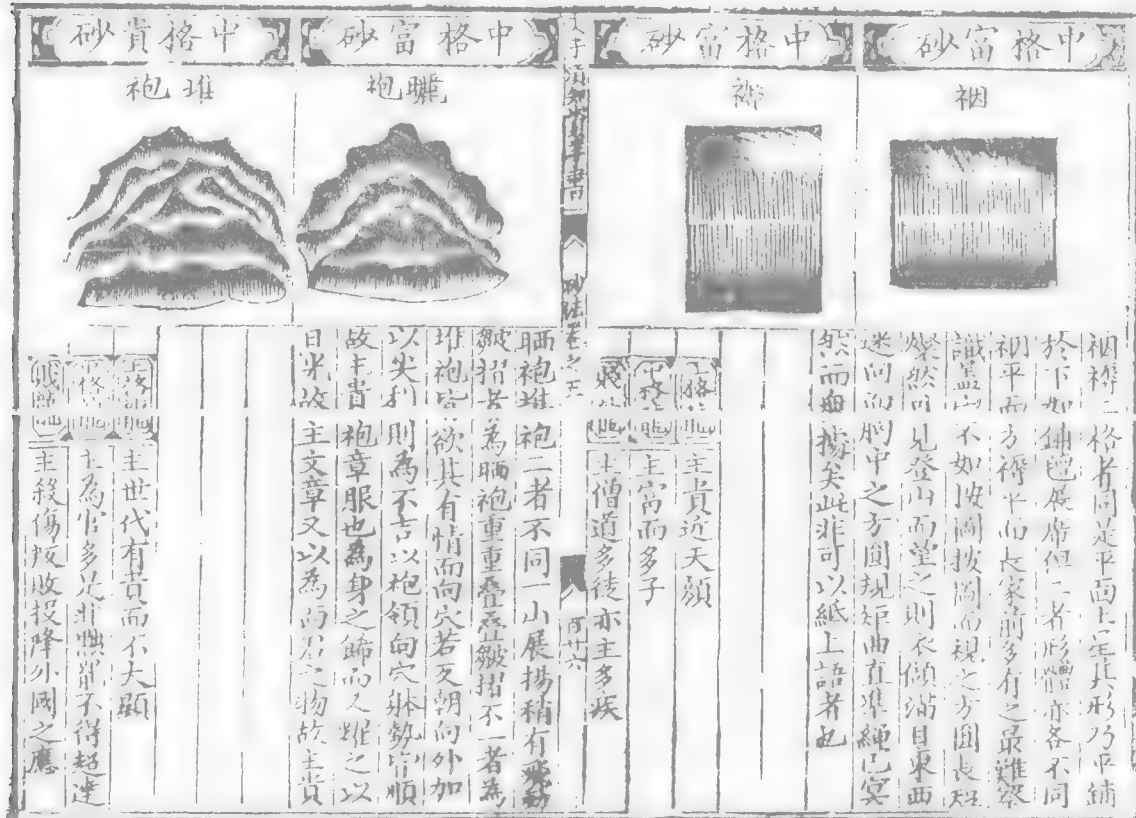 中格富砂
裀
裀褥二格者同是平面土星其形乃平鋪
於下如鋪氊展席但二者形體亦各不同
裀平而方褥平而長家前多有之最難察
識蓋山不如按圖按圖而視之方圓長短
燦然可見登山而望之則衣傾滿目東西
迷向而胸中之方圓規矩曲直準繩已冥
然而無據矣此非可以紙上語者也
中格富砂
褥
上格龍 主貴近天顏
中格龍 主富而多子
賤龍 主僧道多徒亦主多疾
人子須知資孝書
砂法卷之五
百廿六
中格富砂
曬袍
晒袍堆袍二者不同一山展揚稍有
皺摺者為晒袍重重疊疊皺摺不一者為
堆袍皆欲其有情而向穴若反朝向外加
以尖利則為不吉以袍領向穴脉勢皆順
故主貴袍章服也為身之飾而又耀之以
日光故主文章又以為而君之物故主貴
中格貴砂
堆袍
上格龍 主世代有貴而不大顯
中格龍 主為官多是非黜削不得超達
賤龍 主殺傷叛敗投降外國之應